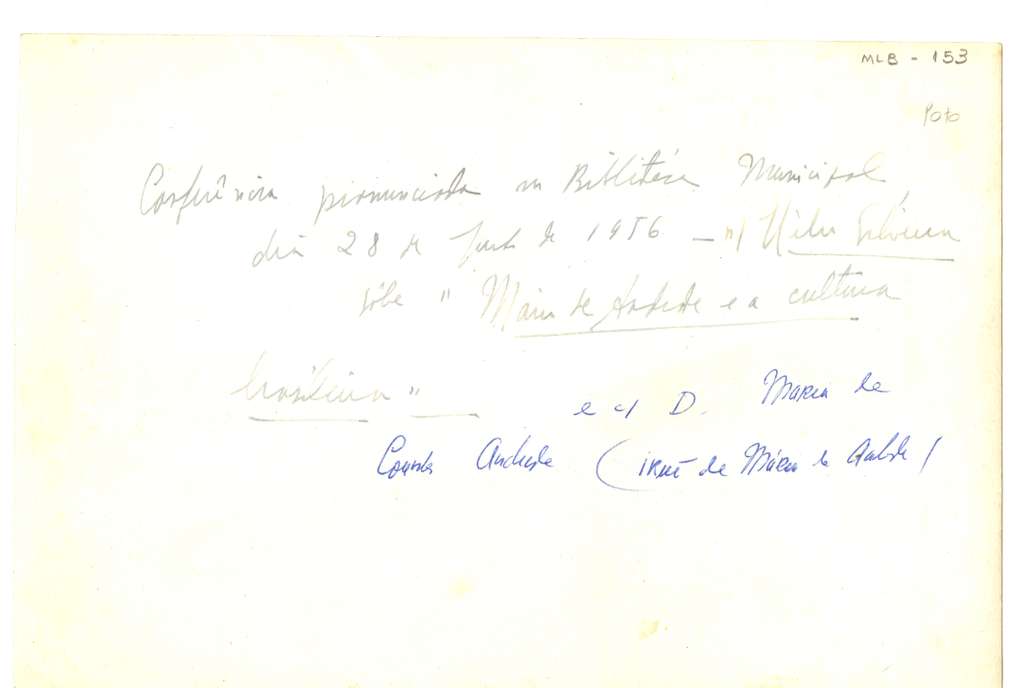 MLB - 153
Foto
Conferência pronunciada na Biblitéca Municipal
dia 28 de de 1956 — p/ Silveira
sôbe " Mário de Andrade e a cultura
brasileira "
e c/ D. Maria de
Lourdes Andrade (irmã de Mário de Andrade)